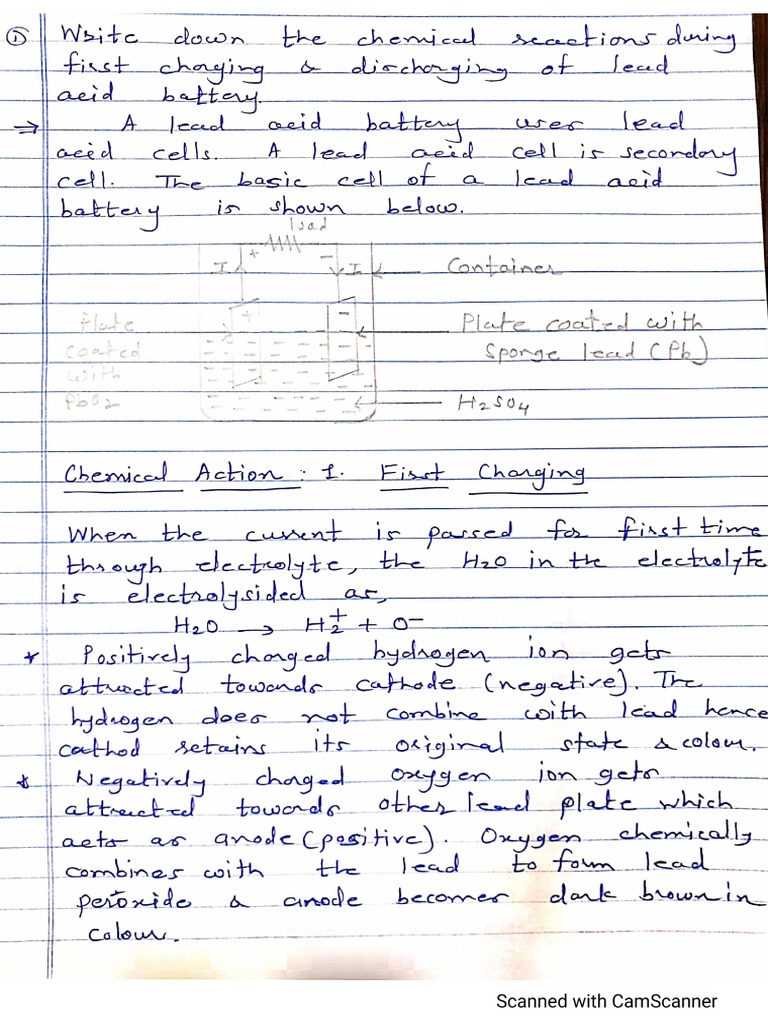 ① Write down the chemical reactions during
first charging & discharging of lead
acid battery.
⇒ A lead acid battery uses lead
acid cells. A lead acid cell is secondary
cell. The basic cell of a lead acid
battery is shown below.
load
+ −
I I Container
+ −
Plate Plate coated with
coated sponge lead (Pb)
with
PbO2 H2SO4
Chemical Action : 1. First Charging
When the current is passed for first time
through electrolyte, the H2O in the electrolyte
is electrolysided as,
H2O → H2+ + O−
* Positively charged hydrogen ion gets
attructed towards cathode (negative). The
hydrogen does not combine with lead hence
cathod retains its original state & colour.
* Negatively charged oxygen ion gets
attracted towards other lead plate which
acts as anode (positive). Oxygen chemically
combines with the lead to form lead
peroxide & anode becomes dark brown in
colour.
Scanned with CamScanner